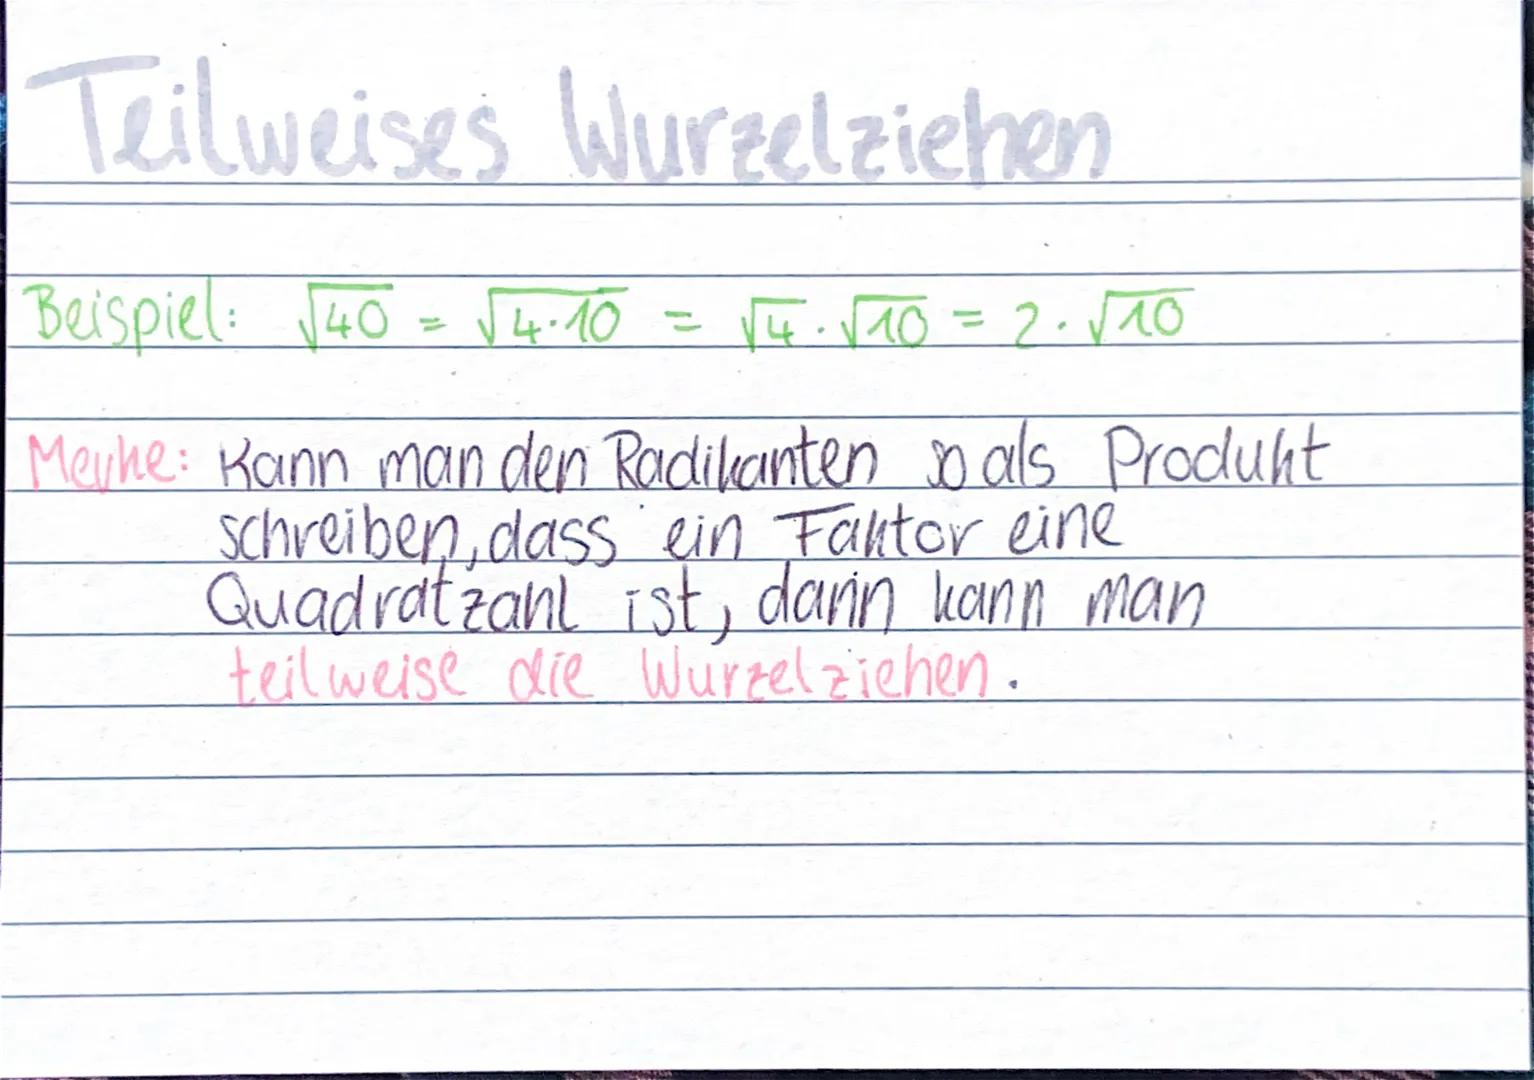 Teilweises Wurzelziehen
Beispiel: √40 = √4·10 = √4·√10 = 2·√10
Merke: Kann man den Radikanten so als Produkt
schreiben, dass ein Faktor eine
Quadratzahl ist, dann kann man
teilweise die Wurzel ziehen.